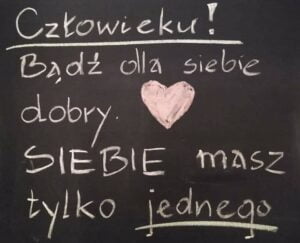 Człowieku!
Bądź dla siebie
dobry.
SIEBIE masz
tylko jednego